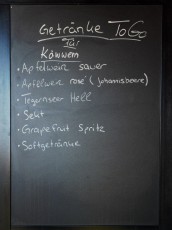 Getränke ToGo
Für
• Apfelwein sauer
• Apfelwein rosé (Johannisbeere)
• Tegernseer Hell
• Sekt
• Grapefruit Spritz
• Softgetränke